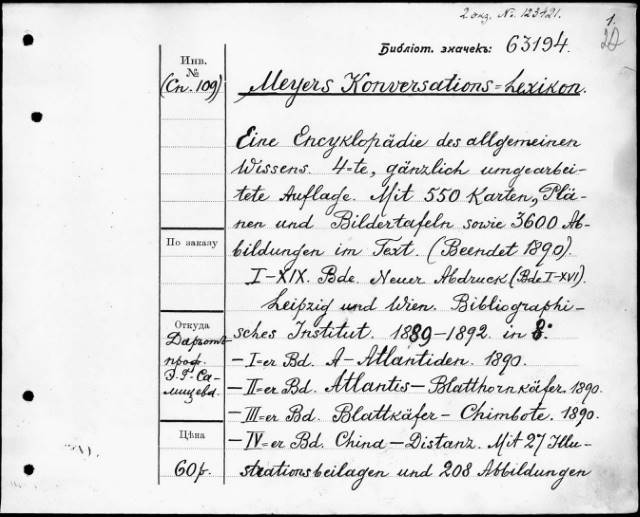 2 экз. № 123121.
1.
Библіот. значекъ: 63194.
Инв.
№
(Сп. 109)
Meyers Konversations=Lexikon.
Eine Encyklopädie des allgemeinen
Wissens. 4=te, gänzlich umgearbei-
tete Auflage. Mit 550 Karten, Plä-
nen und Bildertafeln sowie 3600 Ab-
bildungen im Text. (Beendet 1890).
I-XIX. Bde. Neuer Abdruck (Bde I-XVI).
Leipzig und Wien. Bibliographi-
sches Institut. 1889-1892. in 8:
- I=er Bd. A-Atlantiden. 1890.
- II=er Bd. Atlantis-Blatthornkäfer. 1890.
- III=er Bd. Blattkäfer-Chimbote. 1890.
- IV=er Bd. China-Distanz. Mit 27 Illu-
strationsbeilagen und 208 Abbildungen
По заказу
Откуда
проф.
Э.Г. Са-
Цѣна
60 р.